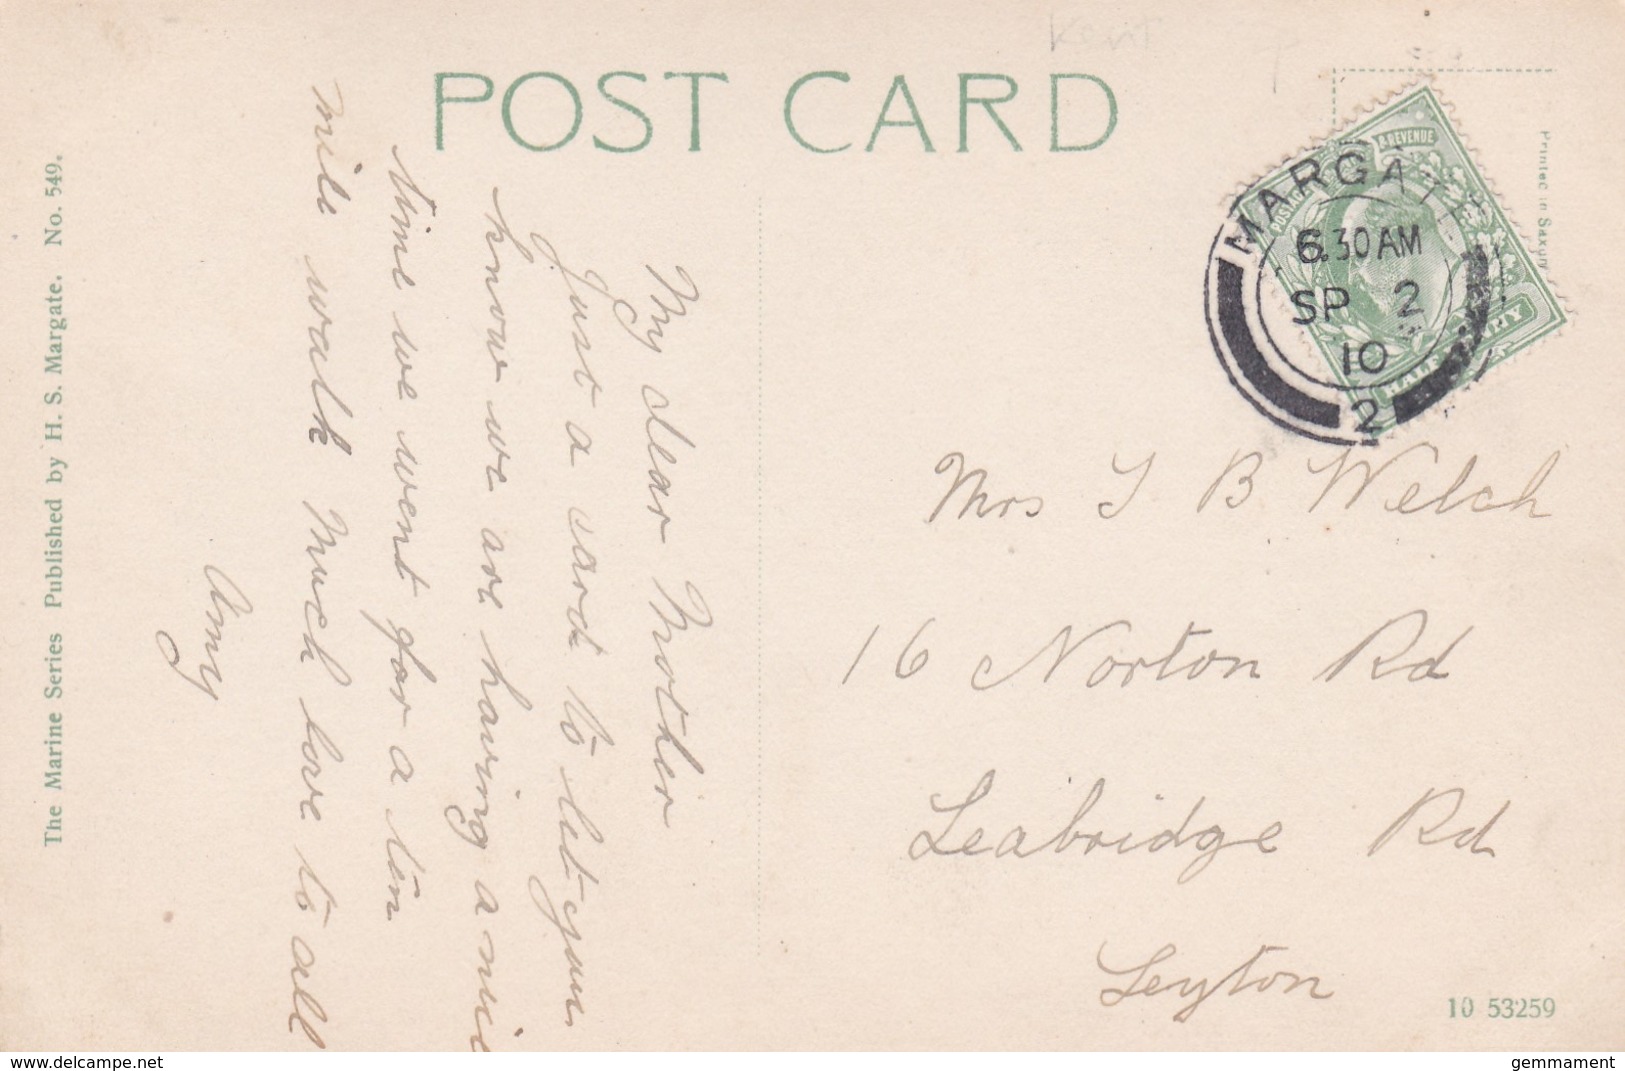 Kent
POST CARD
The Marine Series Published by H. S. Margate. No. 549.
My dear Mother
Just a card to let you
know we are having a nice
time we went for a ten
mile walk Much love to all
Amy
Printed in Saxony
POSTAGE & REVENUE
HALF PENNY
MARGATE
6.30 AM
SP 2
10
2
Mrs J B Welch
16 Norton Rd
Leabridge Rd
Leyton
10 53259
www.delcampe.net
gemmament